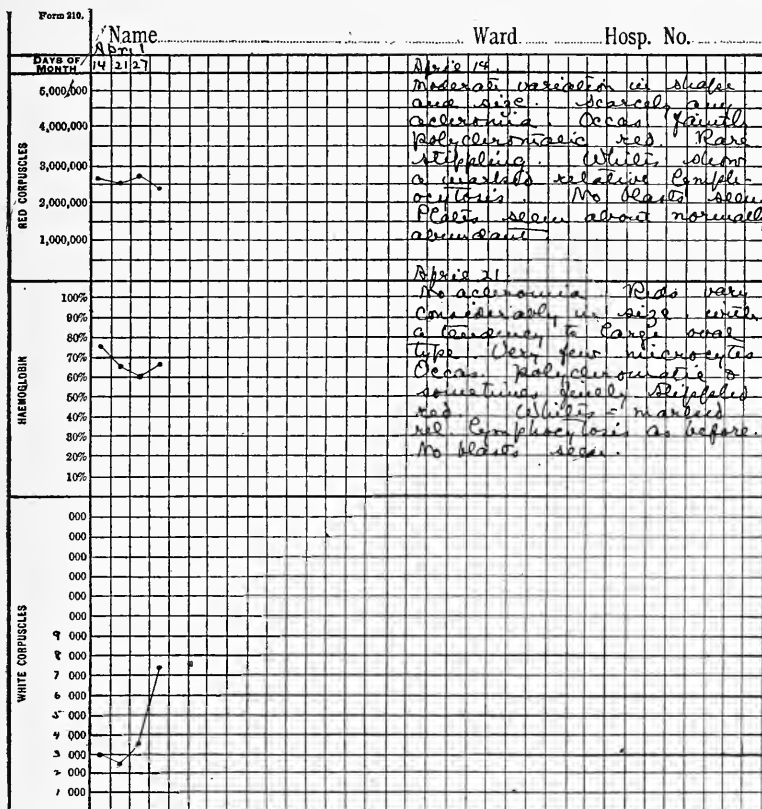 Form 210.
Name Ward Hosp. No.
April
DAYS OF MONTH 14 21 27
RED CORPUSCLES
6,000,000
4,000,000
3,000,000
2,000,000
1,000,000
HAEMOGLOBIN
100%
90%
80%
70%
60%
50%
40%
30%
20%
10%
WHITE CORPUSCLES
000
000
000
000
000
000
9 000
8 000
7 000
6 000
5 000
4 000
3 000
2 000
1 000
April 14.
Moderate variation in shape
and size. Scarcely any
achromia. Occas. faintly
polychromatic red. Rare
stippling. Whites show
a marked relative lymph-
ocytosis. No blasts seen.
Plates seem about normally
abundant
April 21.
No achromia Reds vary
considerably in size with
a tendency to large oval
type. Very few microcytes
Occas. polychromatic &
sometimes finely stippled
red. Whites - marked
rel. lymphocytosis as before.
No blasts seen.